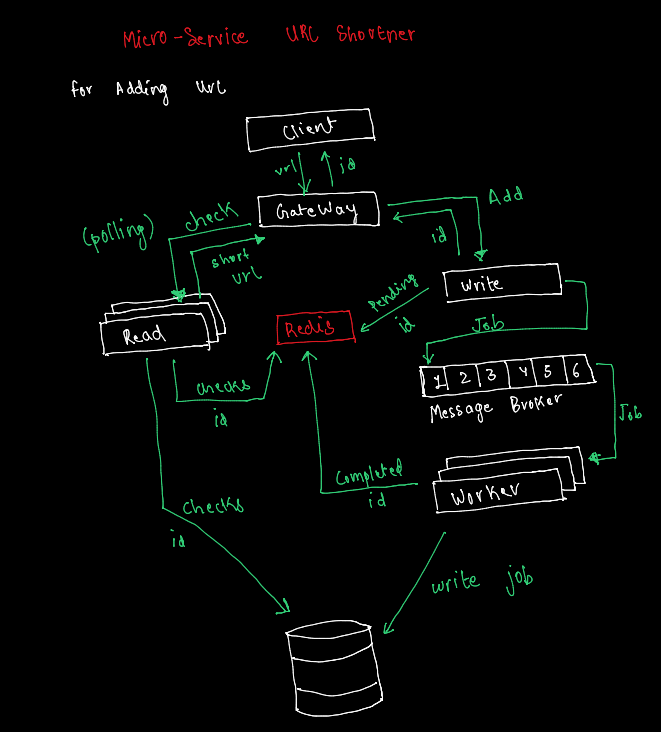 Micro-Service URL Shortner
for Adding Url
Client
url id
GateWay
Add
id
check
(polling)
short
url
Write
pending
id
Read
Redis
Job
1 2 3 4 5 6
Message Broker
Job
checks
id
Completed
id
Worker
checks
id
write job